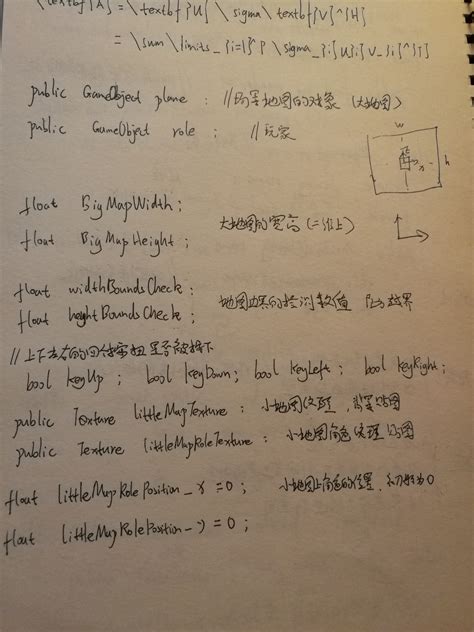 \textbf{A} = \textbf{U} \sigma \textbf{V}^{H}
= \sum \limits_{i=1}^P \sigma_{i} U_{i} V_{i}^{T}
public GameObject plane ; //场景地图的对象 (大地图)
public GameObject role ; //玩家
w
h
x
float BigMapWidth ;
大地图的宽高 (二维上)
float BigMapHeight ;
float widthBoundsCheck ;
float heightBoundsCheck ; 地图边界的检测数值 防越界
//上下左右的四个按钮是否被按下
bool keyUp ; bool keyDown; bool keyLeft ; bool keyRight;
public Texture littleMapTexture ; 小地图纹理, 背景贴图
public Texture littleMapRoleTexture ; 小地图角色纹理 贴图
float littleMapRolePosition_x = 0 ; 小地图上角色的位置, 初始为0
float littleMapRolePosition_y = 0 ;